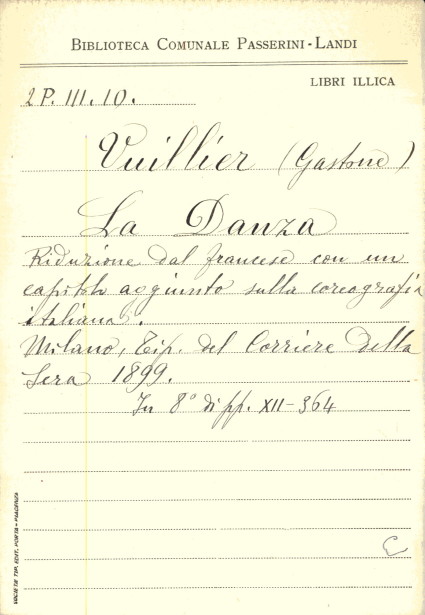 BIBLIOTECA COMUNALE PASSERINI-LANDI
LIBRI ILLICA
2P. III. 10.
Vuillier (Gastone)
La Danza
Riduzione dal francese con un
capitolo aggiunto sulla coreografia
italiana.
Milano, Tip. del Corriere della
Sera 1899.
In 8° di pp. XII-364
SOCIETÀ TIP. EDIT. PORTA - PIACENZA
C